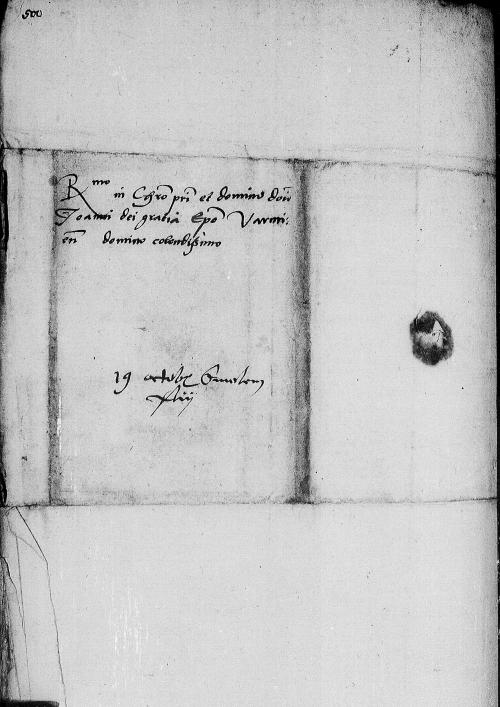 500
R^mo in Chro pri et domino dno
Joanni dei gratia Epo Varmi:
en domino colendissimo
19 octobr